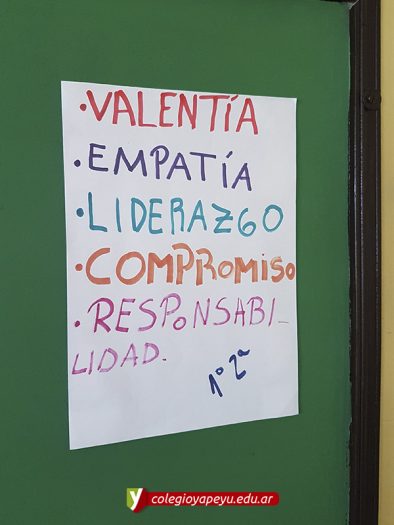 · VALENTÍA
· EMPATÍA
· LIDERAZGO
· COMPROMISO
· RESPONSABI_
LIDAD.
1° 2ª
y colegioyapeyu.edu.ar